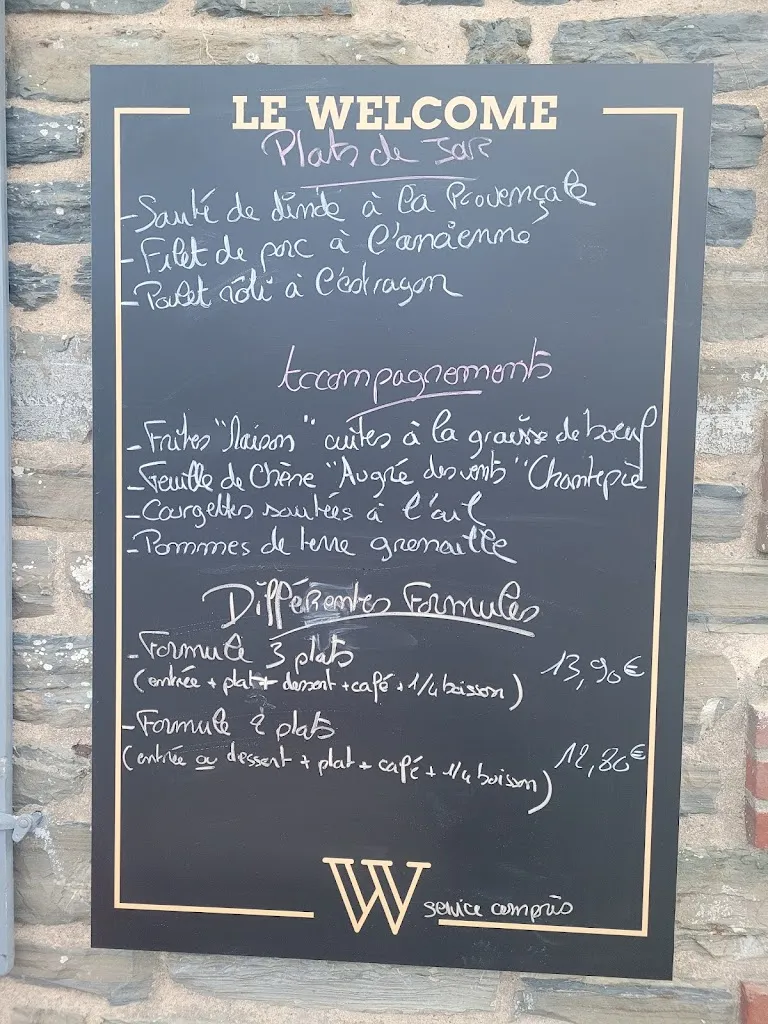 LE WELCOME
Plats de jour
- Sauté de dinde à la Provençale
- Filet de porc à l'ancienne
- Poulet rôti à l'estragon
Accompagnements
- Frites "Maison" cuites à la graisse de boeuf
- Feuille de Chêne "Au gré des vents" Chantepie
- Courgettes sautées à l'ail
- Pommes de terre grenaille
Différentes Formules
- Formule 3 plats
(entrée + plat + dessert + café + 1/4 boisson) 13,90€
- Formule 2 plats
(entrée ou dessert + plat + café + 1/4 boisson) 12,80€
W service compris